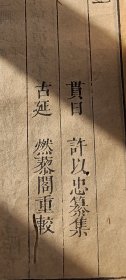 貫日 許以忠纂集
古延 燃藜閣重較